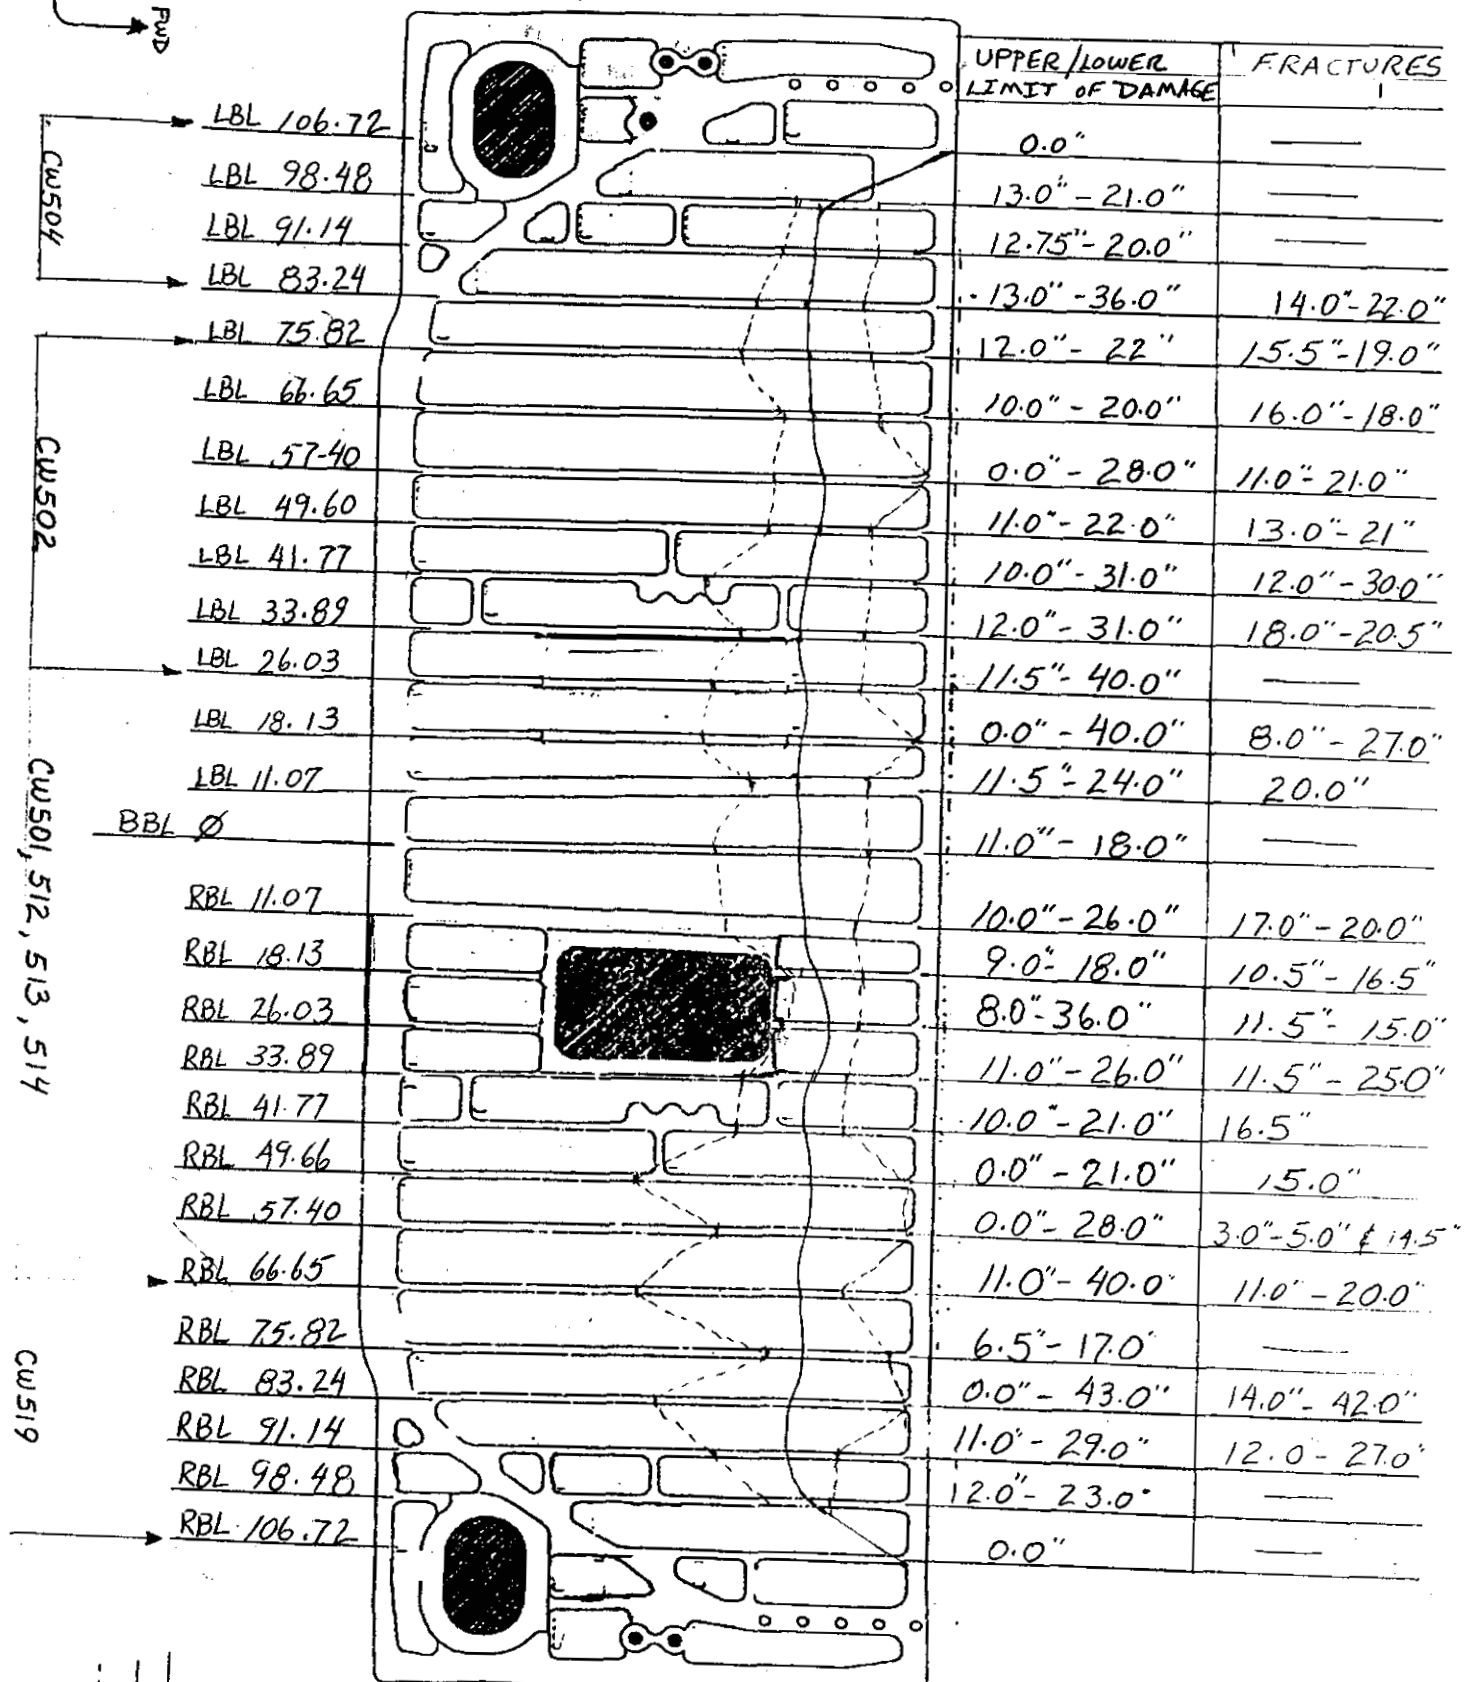 FWD
UPPER/LOWER FRACTURES
LIMIT OF DAMAGE
LBL 106.72 0.0" —
LBL 98.48 13.0" - 21.0" —
LBL 91.14 12.75" - 20.0" —
LBL 83.24 13.0" - 36.0" 14.0" - 22.0"
LBL 75.82 12.0" - 22" 15.5" - 19.0"
LBL 66.65 10.0" - 20.0" 16.0" - 18.0"
LBL 57-40 0.0" - 28.0" 11.0" - 21.0"
LBL 49.60 11.0" - 22.0" 13.0" - 21"
LBL 41.77 10.0" - 31.0" 12.0" - 30.0"
LBL 33.89 12.0" - 31.0" 18.0" - 20.5"
LBL 26.03 11.5" - 40.0" —
LBL 18.13 0.0" - 40.0" 8.0" - 27.0"
LBL 11.07 11.5" - 24.0" 20.0"
BBL Ø 11.0" - 18.0" —
RBL 11.07 10.0" - 26.0" 17.0" - 20.0"
RBL 18.13 9.0" - 18.0" 10.5" - 16.5"
RBL 26.03 8.0" - 36.0" 11.5" - 15.0"
RBL 33.89 11.0" - 26.0" 11.5" - 25.0"
RBL 41.77 10.0" - 21.0" 16.5"
RBL 49.66 0.0" - 21.0" 15.0"
RBL 57.40 0.0" - 28.0" 3.0" - 5.0" & 14.5"
RBL 66.65 11.0" - 40.0 11.0" - 20.0"
RBL 75.82 6.5" - 17.0 —
RBL 83.24 0.0" - 43.0" 14.0" - 42.0"
RBL 91.14 11.0" - 29.0" 12.0 - 27.0
RBL 98.48 12.0" - 23.0" —
RBL 106.72 0.0" —
CW504
CW502
CW501, 512, 513, 514
CW519